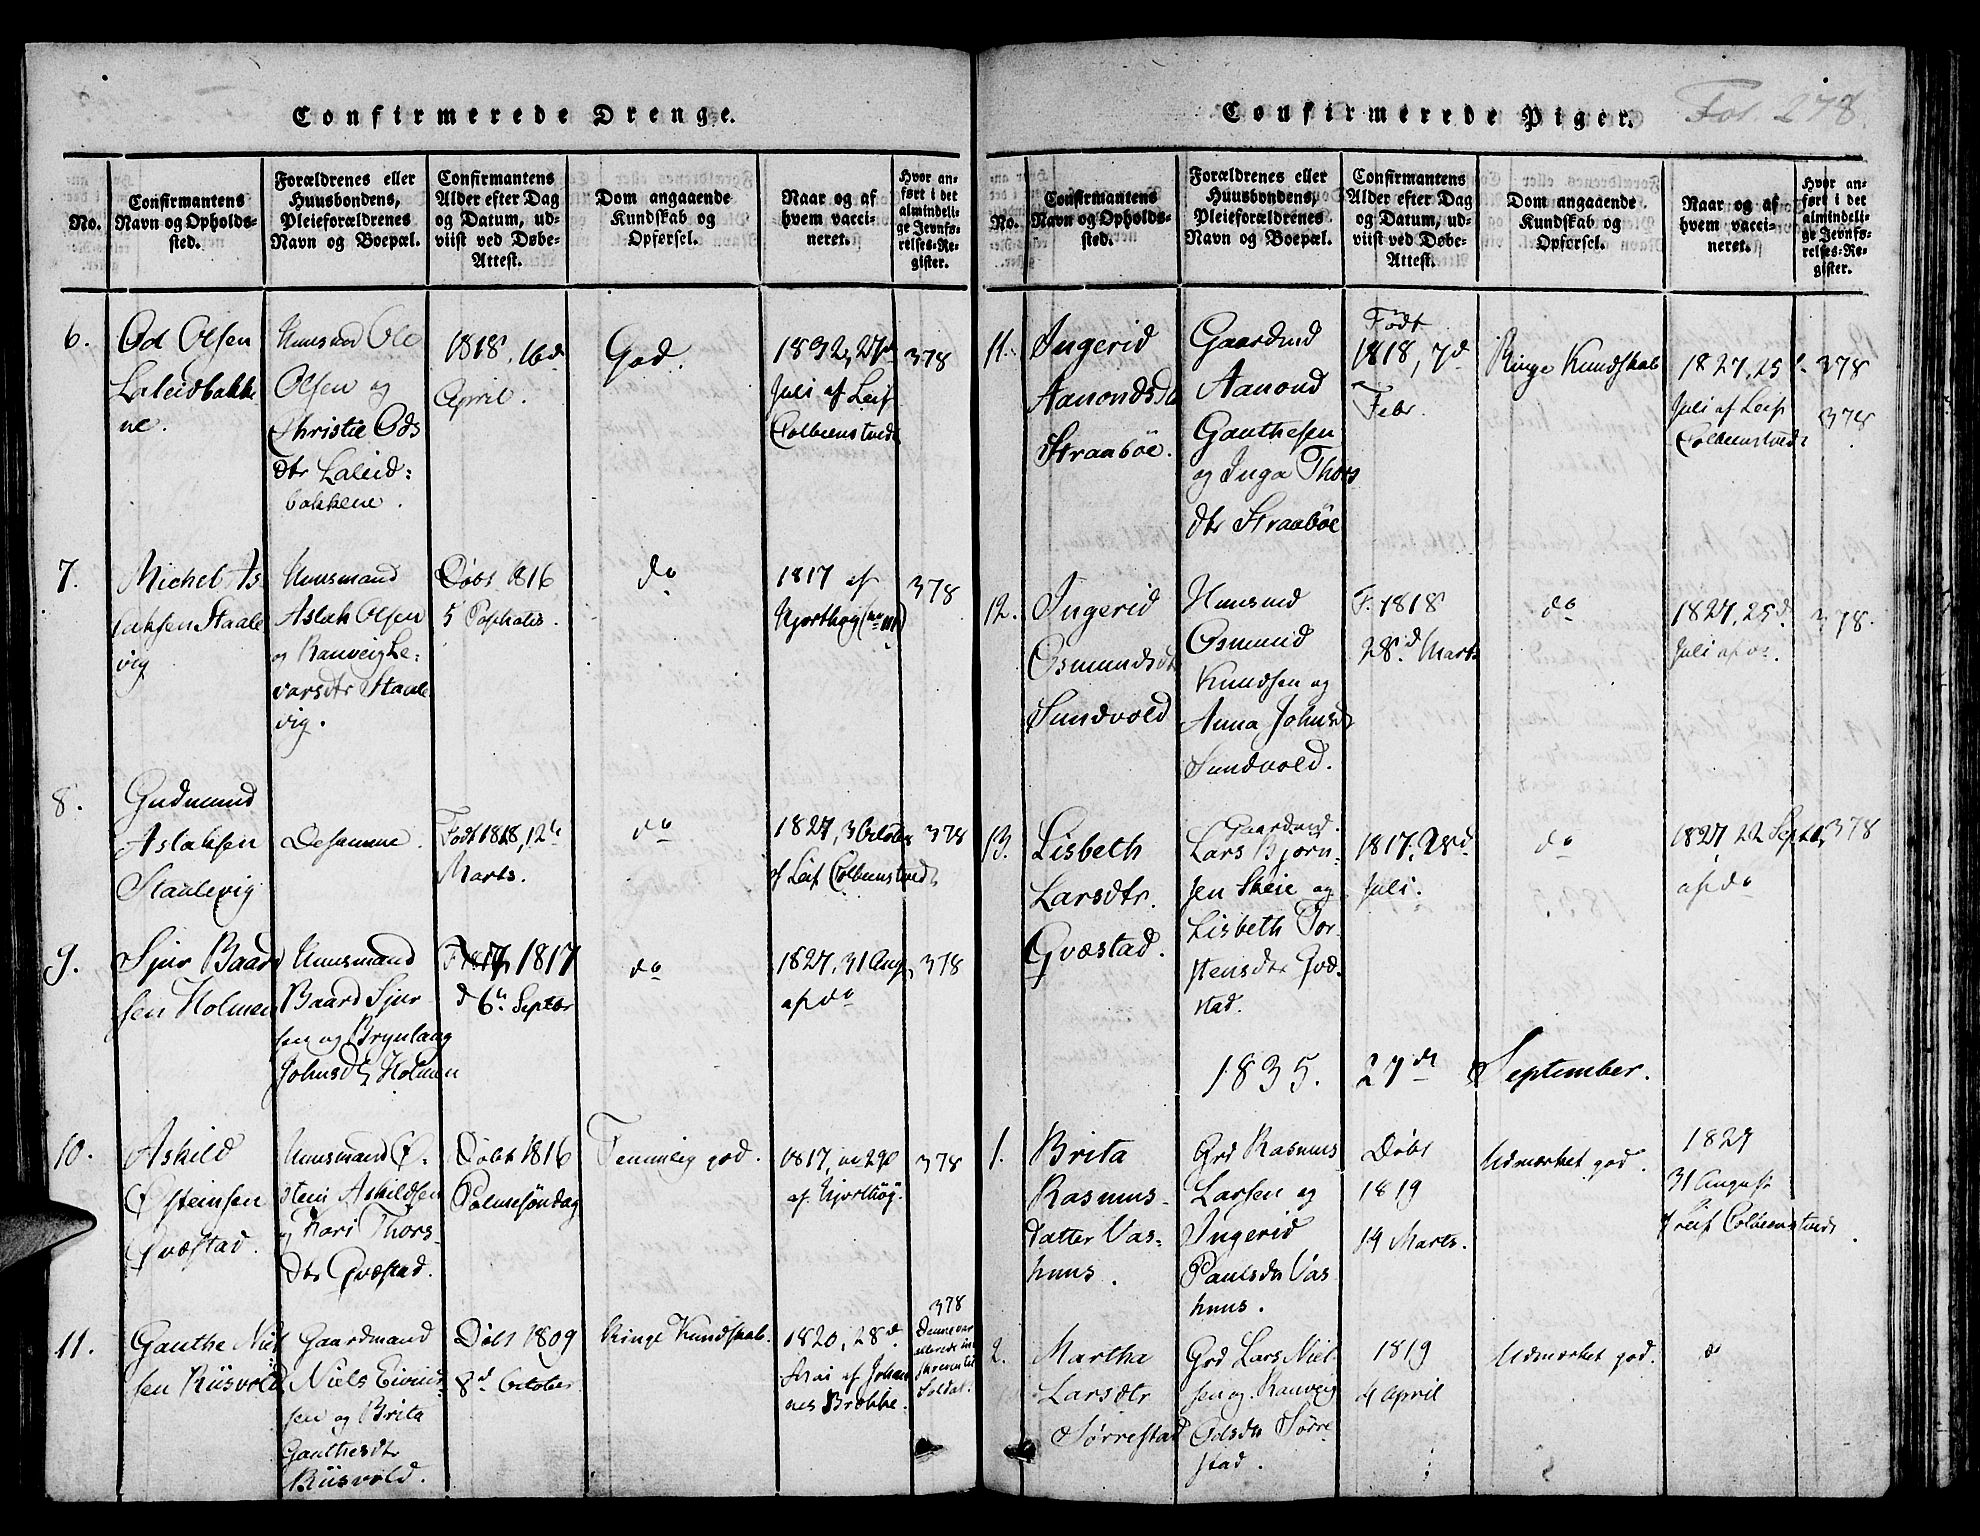 Confirmerede Drenge.
No.
Confirmantens
Navn og Opholds-
sted.
Forældrenes eller
Huusbondens,
Pleieforældrenes
Navn og Boepæl.
Confirmantens
Alder efter Dag
og Datum, ud-
viist ved Døbe-
Attest.
Dom angaaende
Kundskab og
Opførsel.
Naar og af
hvem vacci-
neret.
Hvor an-
ført i det
almindeli-
ge Jevnfø-
relses-Re-
gister.
6.
Od Olsen
Laleidbakke
ne.
Huusmd Ole
Olsen og
Christie Ods
dtr Laleid:
bakkene.
1818, 16d
April.
God.
1832, 27d
Juli af Leif
Colbeenstvedt
378
7.
Michel As
laksen Staale
vig
Huusmand
Aslak Olsen
og Ranveig Le:
varsdtr Staale
vig.
Døbt 1816
5 Paschatis.
do
1817 af
Hjorthøg
378
8.
Gudmund
Aslaksen
Staalevig
Desamme.
Født 1818, 12te
Marts.
do
1827, 3 October
af Leif Colbeenstvedt
378
9.
Sjur Baard
sen Holmen
Huusmand
Baard Sjur
sen og Brynlaug
Johnsdtr Holmen
1817
d 6te Septbr
do
1827, 31 Aug.
af do
378
10.
Askild
Østeinsen
Qvæstad.
Huusmand Ø.
stein Askildsen
og Kari Thors-
dtr Qvæstad.
Døbt 1816
Palmesøndag
Temmelig god.
1817,
af Hjorthøg.
378
11.
Gauthe Niel
sen Riisvold
Gaardmand
Niels Eivin
sen og Brita
Gauthesdtr
Riisvold.
Døbt 1809
8d October
Ringe Kundskab.
1820, 28d
Mai af Johan
nes Brække.
378
Denne var
allerede ind
skreven til
Soldat.
Confirmerede Piger.
Fol. 278
No.
Confirmantens
Navn og Opholds-
sted.
Forældrenes eller
Huusbondens,
Pleieforældrenes
Navn og Boepæl.
Confirmantens
Alder efter Dag
og Datum, ud-
viist ved Døbe-
Attest.
Dom angaaende
Kundskab og
Opførsel.
Naar og af
hvem vacci-
neret.
Hvor an-
ført i det
almindeli-
ge Jevnfø-
relses-Re-
gister.
11.
Ingerid
Aanondsdtr
Straabøe.
Gaardmd
Aanond
Gauthesen
og Inga Thors
dtr Straabøe
Født
1818, 7d
Febr.
Ringe Kundskab
1827, 25d
Juli af Leif
Colbeenstvedt
378
378
12.
Ingerid
Osmundsdtr
Sundvold
Huusmd
Osmund
Knudsen og
Anna Johnsdtr
Sundvold.
F. 1818
28d Marts
do
1827, 25d.
Juli af do.
378.
13.
Lisbeth
Larsdtr.
Qvæstad.
Gaardmd.
Lars Bjørn-
sen Skeie og
Lisbeth Tor-
stensdtr Qvæ-
stad.
1817, 28d
Juli.
do
1827 22 Septbr
af do
378
1835. 27de September.
1.
Brita
Rasmus-
datter Vas-
huus.
Grd Rasmus
Larsen og
Ingerid
Paulsdtr Vas
huus.
Døbt
1819
14 Marts.
Udmærket god.
1827
31 August
af Leif Colbeenstvedt.
2.
Martha
Larsdtr
Sørrestad
Grd Lars Niel-
sen og Ranveig
Odsdtr Sørre
stad.
1819
4 April
Udmærket god.
do